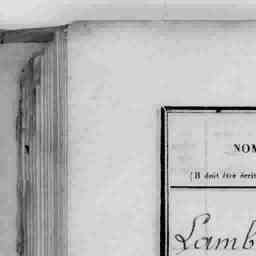 NOM
(Il doit être écrit
Lamb